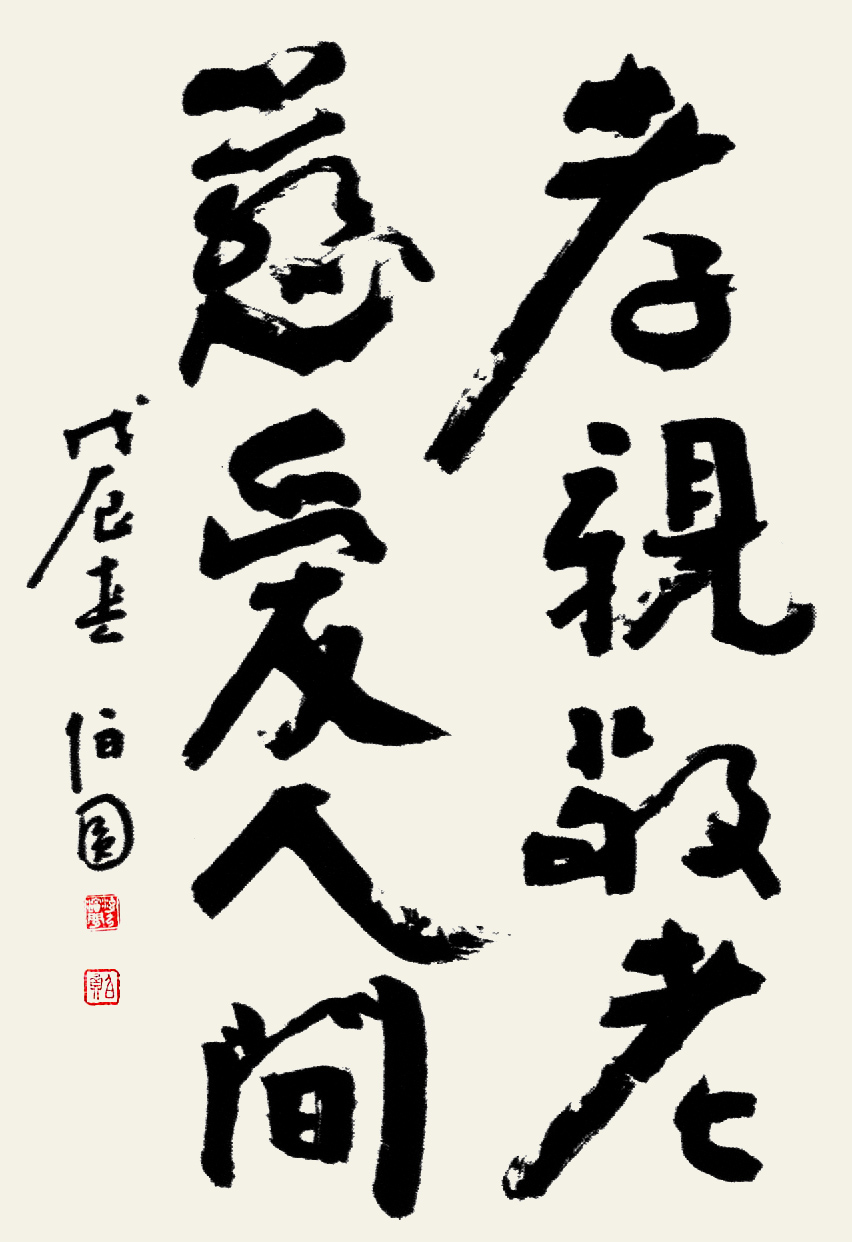 孝親敬老
慈愛人間
戊辰春 伯圓